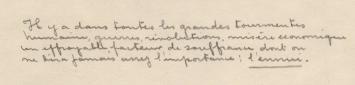 Il y a dans toutes les grandes tourmentes
humaines, guerres, révolutions, misère économique
un effroyable facteur de souffrance dont on
ne dira jamais assez l'importance : l'ennui.